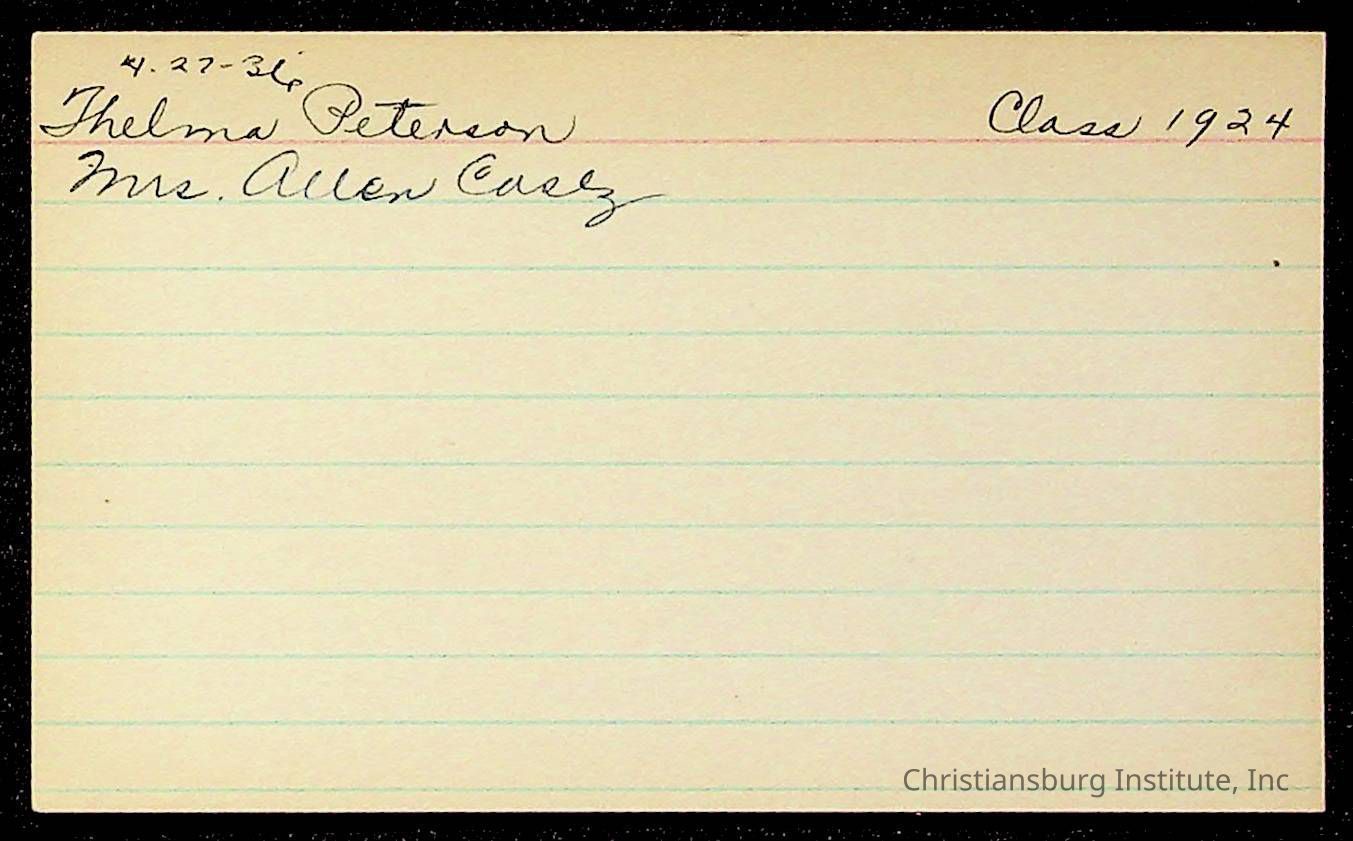 4-27-36
Thelma Peterson Class 1924
Mrs. Allen Casey
Christiansburg Institute, Inc